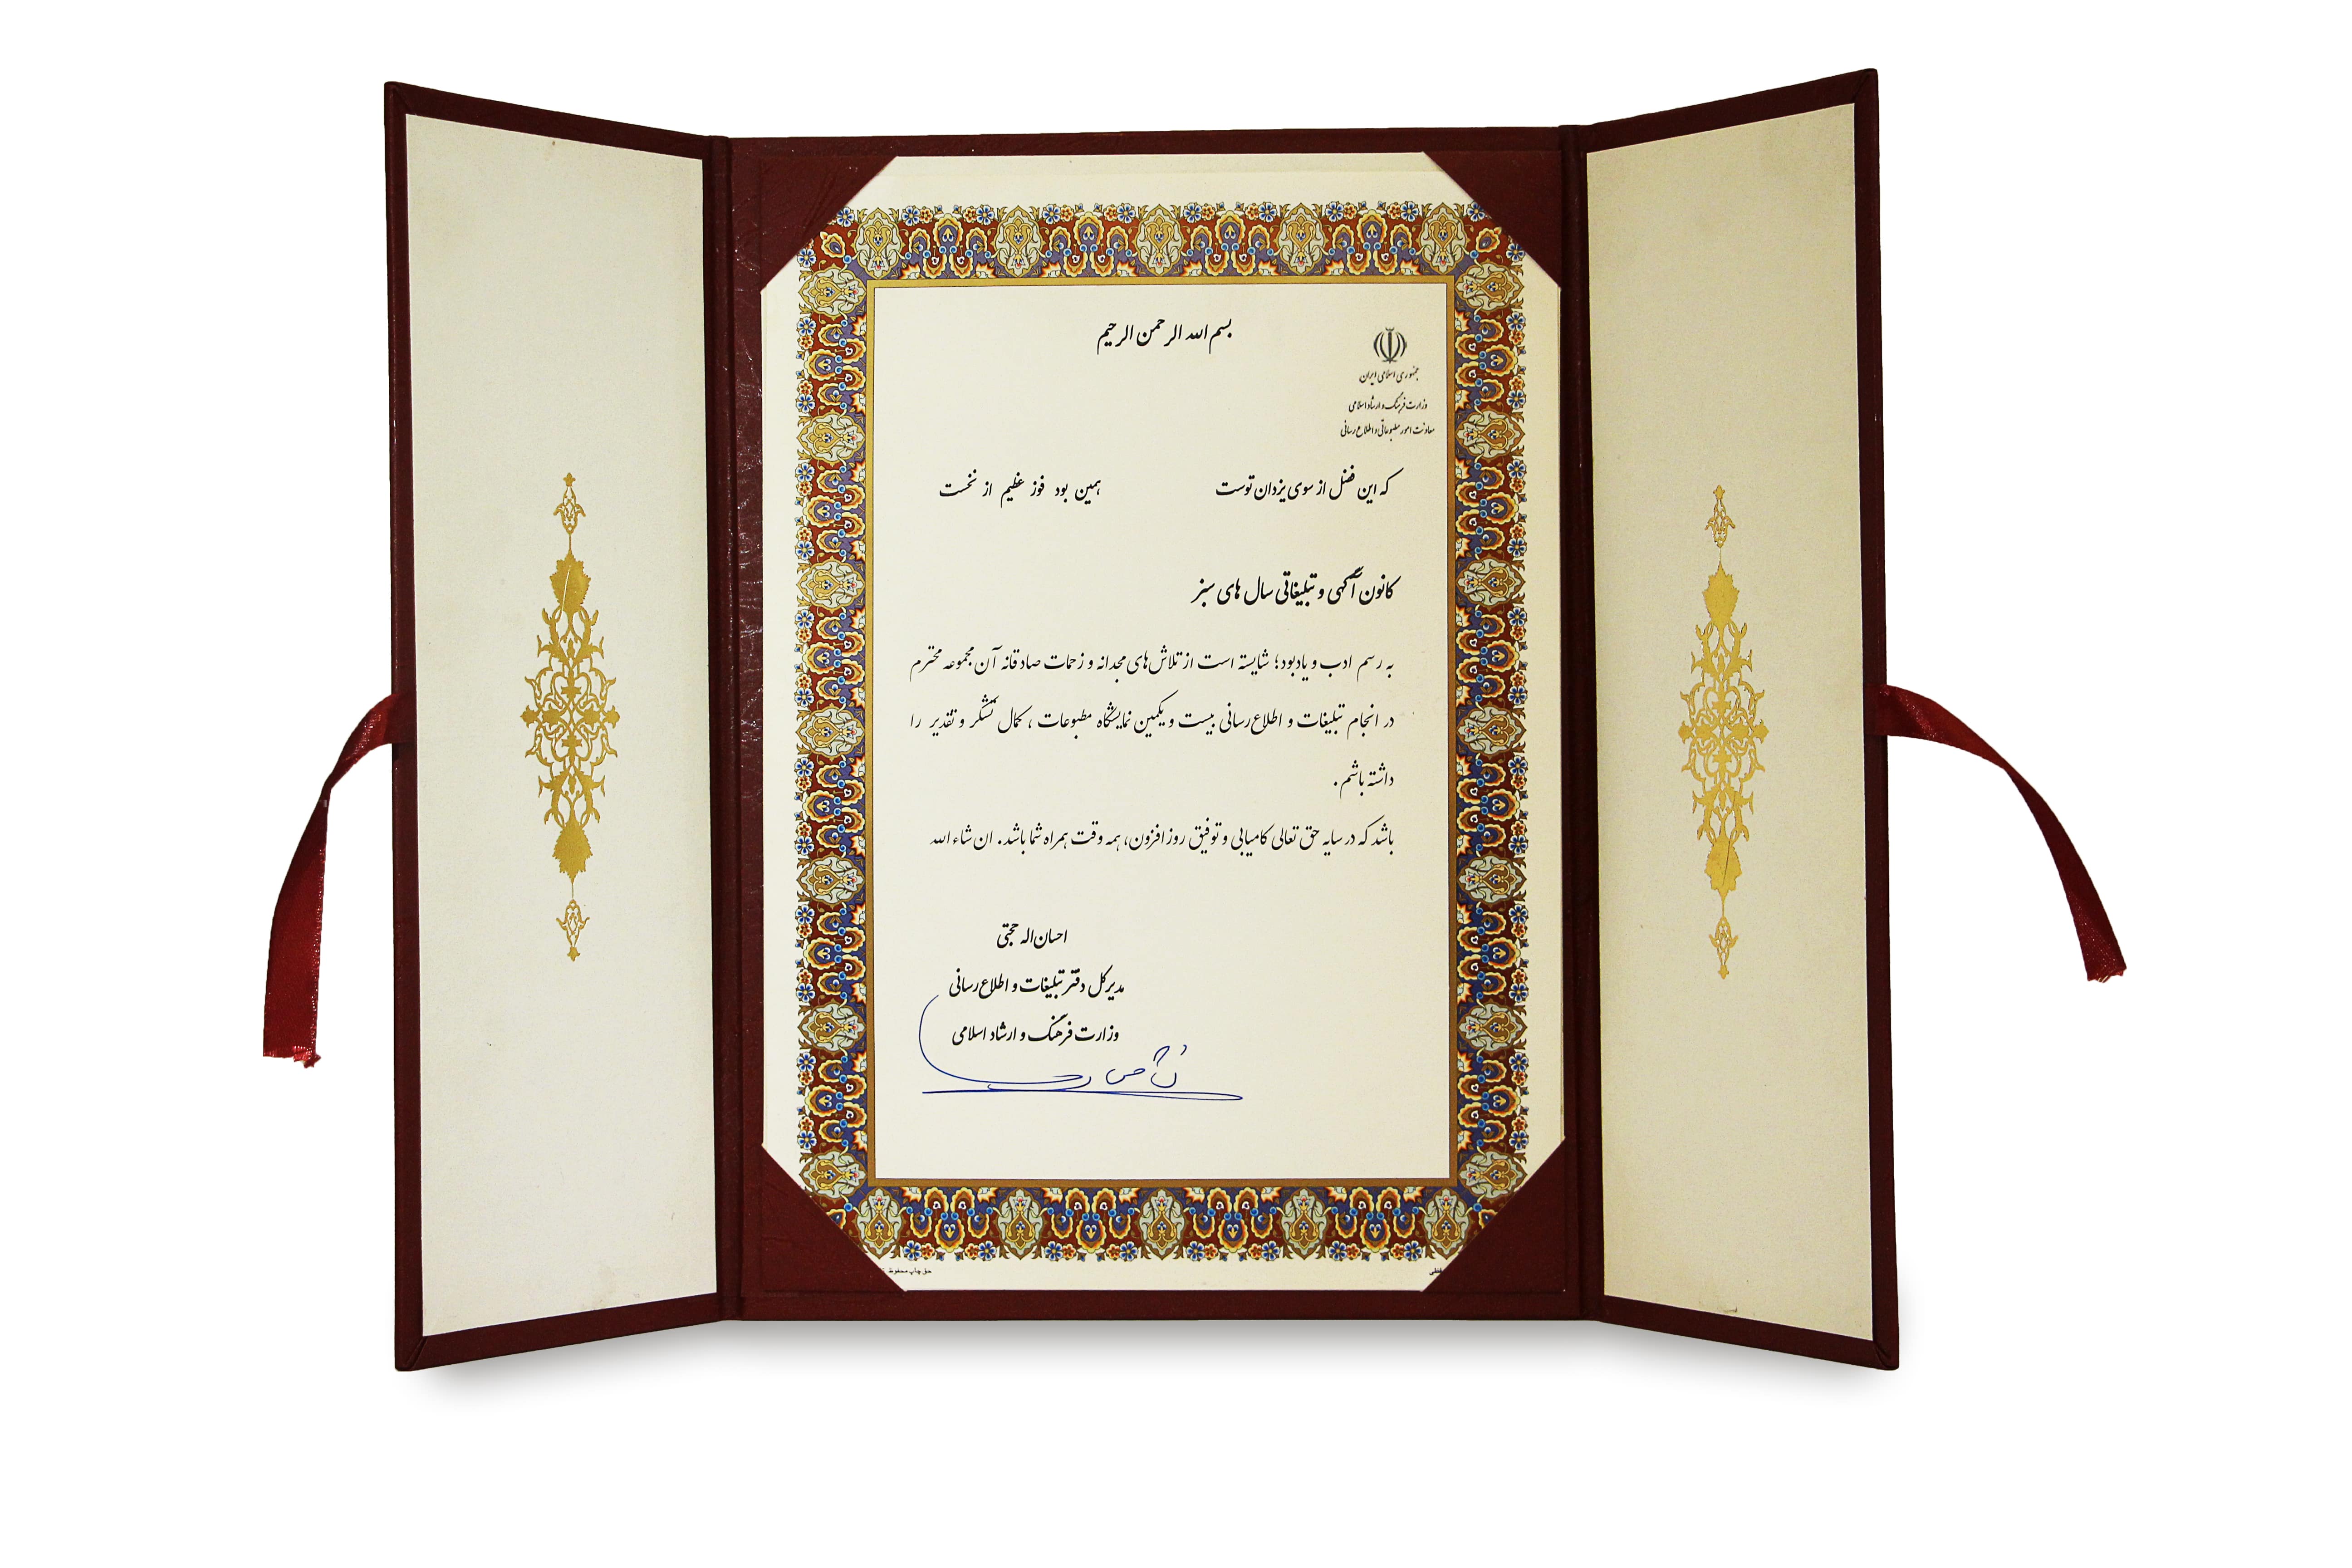 بسم الله الرحمن الرحیم
جمهوری اسلامی ایران
وزارت فرهنگ و ارشاد اسلامی
معاونت امور مطبوعاتی و اطلاع رسانی
که این فضل از سوی یزدان توست همین بود فوز عظیم از نخست
کانون آگهی و تبلیغاتی سال های سبز
به رسم ادب و یادبود؛ شایسته است از تلاش‌های مجدانه و زحمات صادقانه آن مجموعه محترم
در انجام تبلیغات و اطلاع رسانی بیست و یکمین نمایشگاه مطبوعات، کمال تشکر و تقدیر را
داشته باشم.
باشد که در سایه حق تعالی کامیابی و توفیق روز افزون، همه وقت همراه شما باشد. ان شاء الله
احسان اله حجتی
مدیر کل دفتر تبلیغات و اطلاع رسانی
وزارت فرهنگ و ارشاد اسلامی
حق چاپ محفوظ